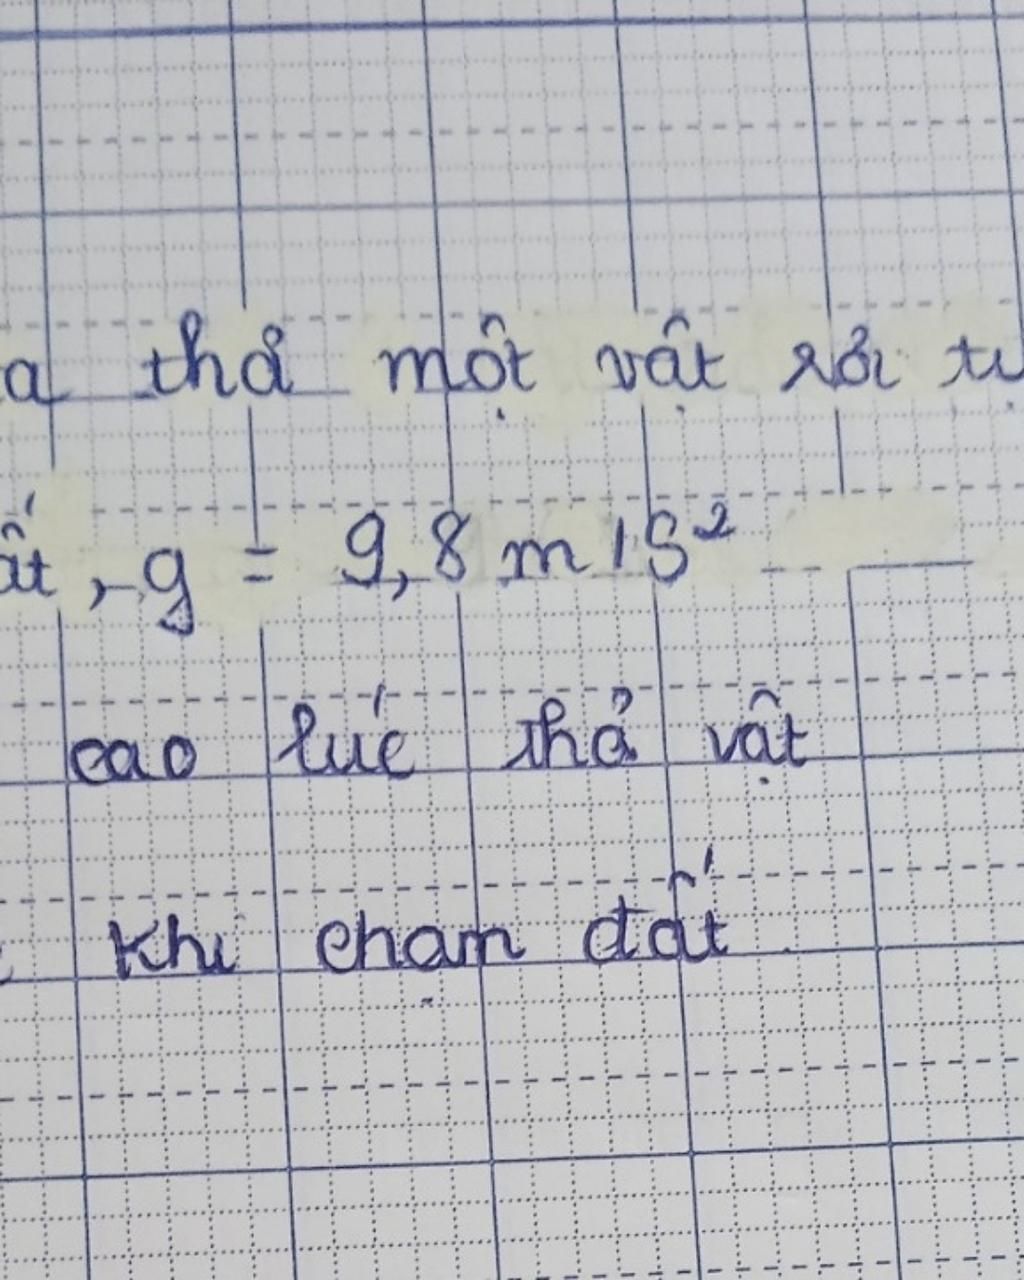 a thả một vật rơi tự
ất, g = 9,8 m/s²
cao lúc thả vật
khi chạm đất